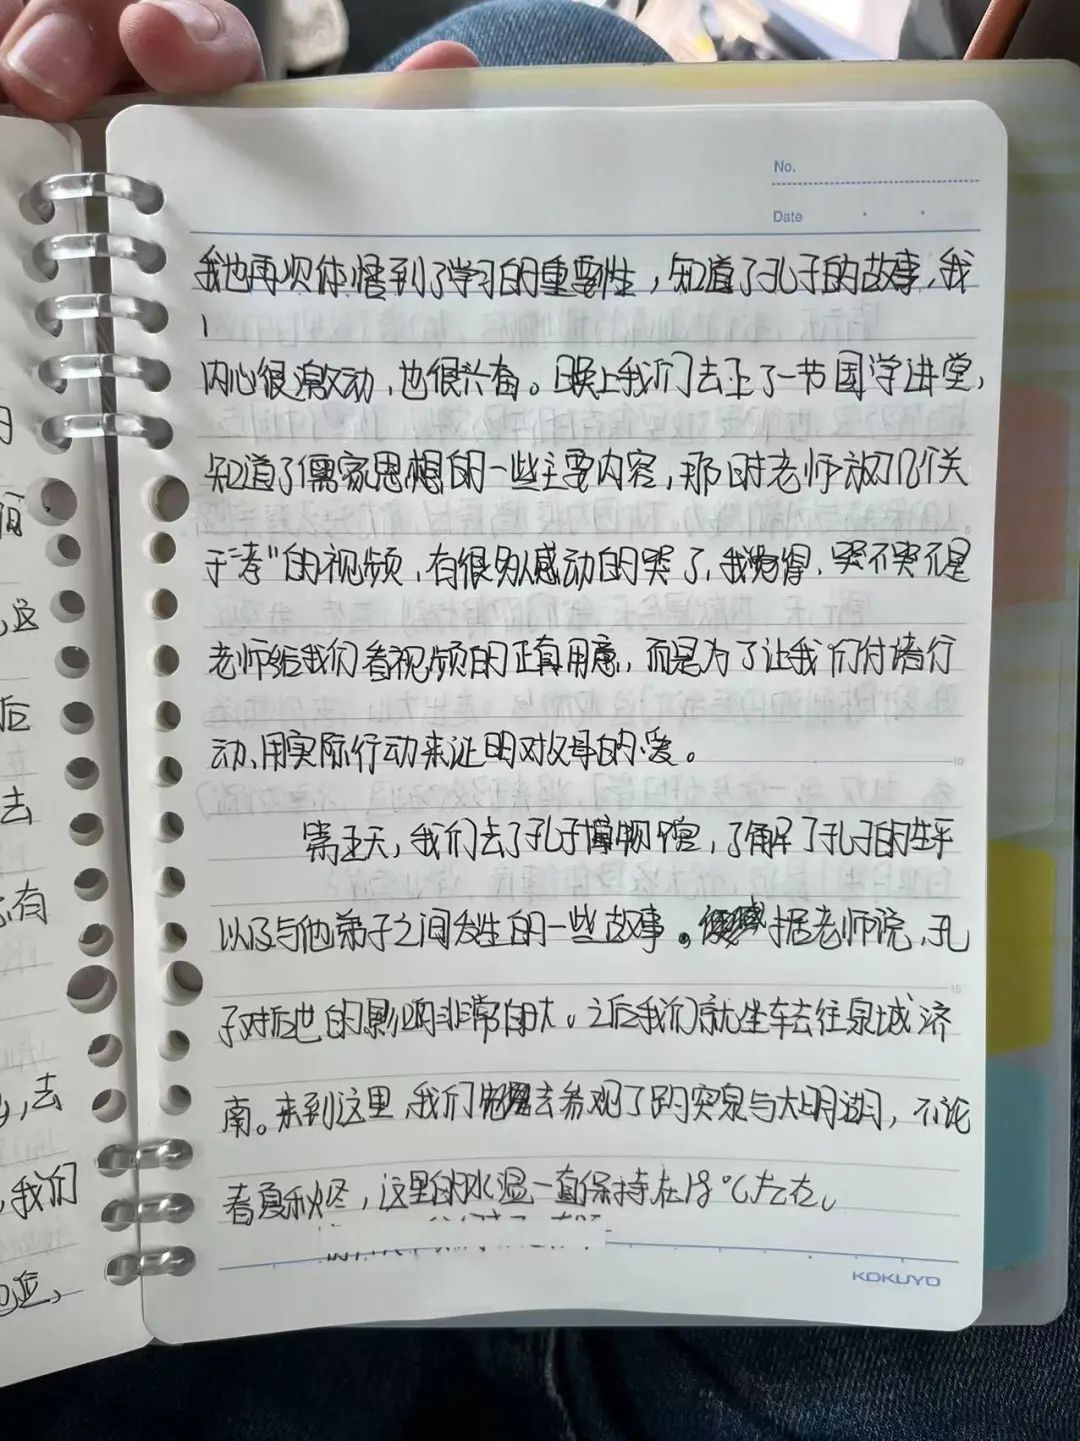 No.
Date
我也再次体悟到了学习的重要性，知道了孔子的故事，我
内心很激动，也很兴奋。晚上我们去上了一节国学讲堂，
知道了儒家思想的一些主要内容，那时老师放了几个关
于“孝”的视频，有很多人感动的哭了，我觉得，哭不哭不是
老师给我们看视频的正真用意，而是为了让我们付诸行
动，用实际行动来证明对父母的爱。
第五天，我们去了孔子博物馆，了解了孔子的生平
以及与他弟子之间发生的一些故事。据老师说，孔
子对后世的影响非常的大。之后我们就坐车去往泉城济
南。来到这里，我们去参观了趵突泉与大明湖，不论
春夏秋冬，这里的水温一直保持在18℃左右。
KOKUYO
这
后
去
有
去
我们